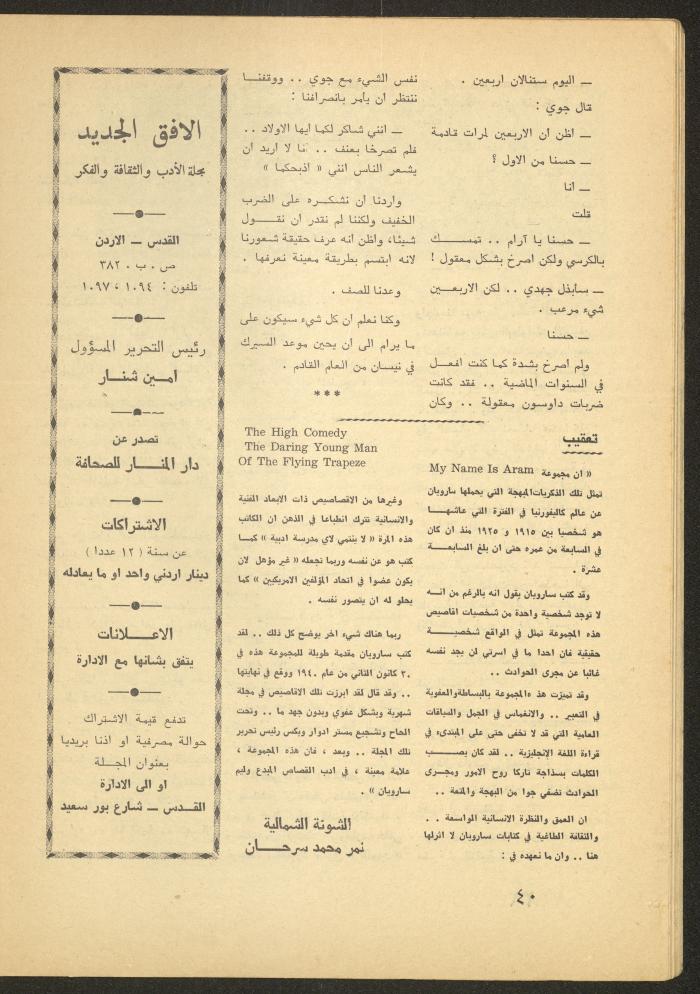 ــ اليوم ستنالان اربعين .
قال جوي :
ــ اظن ان الاربعين لمرات قادمة
ــ حسنا من الاول ؟
ــ انا
قلت
ــ حسنا يا آرام .. تمسك
بالكرسي ولكن اصرخ بشكل معقول !
ــ سابذل جهدي .. لكن الاربعين
شيء مرعب .
ــ حسنا
ولم اصرخ بشدة كما كنت افعل
في السنوات الماضية .. فقد كانت
ضربات داوسون معقولة .. وكان
نفس الشيء مع جوي .. ووقفنا
ننتظر ان يامر بانصرافنا :
ــ انني شاكر لكما ايها الاولاد ..
فلم تصرخا بعنف .. انا لا اريد ان
يشعر الناس انني « اذبحكما »
واردنا ان نشكره على الضرب
الخفيف ولكننا لم نقدر ان نقول
شيئا، واظن انه عرف حقيقة شعورنا
لانه ابتسم بطريقة معينة نعرفها .
وعدنا للصف .
وكنا نعلم ان كل شيء سيكون على
ما يرام الى ان يحين موعد السيرك
في نيسان من العام القادم .
***
تعقيب
« ان مجموعة My Name Is Aram
تمثل تلك الذكريات المبهجة التي يحملها سارويان
عن عالم كاليفورنيا في الفترة التي عاشها
هو شخصيا بين ١٩١٥ و ١٩٢٥ منذ ان كان
في السابعة من عمره حتى ان بلغ السابعة
عشرة .
وقد كتب سارويان يقول انه بالرغم من انه
لا توجد شخصية واحدة من شخصيات اقاصيص
هذه المجموعة تمثل في الواقع شخصية
حقيقية فان احدا ما في اسرتي لن يجد نفسه
غائبا عن مجرى الحوادث ..
وقد تميزت هذه المجموعة بالبساطة والعفوية
في التعبير .. والانغماس في الجمل والسياقات
العامية التي قد لا تخفى حتى على المبتدىء في
قراءة اللغة الإنجليزية .. لقد كان يصب
الكلمات بسذاجة تاركا روح الامور ومجرى
الحوادث تضفي جوا من البهجة والمتعة ..
ان العمق والنظرة الانسانية الواسعة ..
والثقافة الطاغية في كتابات سارويان لا اثر لها
هنا .. وان ما نعهده في :
The High Comedy
The Daring Young Man
Of The Flying Trapeze
وغيرها من الاقصاصيص ذات الابعاد الفنية
والانسانية تترك انطباعا في الذهن ان الكاتب
هذه المرة « لا ينتمي لاي مدرسة ادبية » كما
كتب هو عن نفسه وربما تجعله « غير مؤهل لان
يكون عضوا في اتحاد المؤلفين الامريكين » كما
يحلو له ان يتصور نفسه .
ربما هناك شيء اخر يوضح كل ذلك .. لقد
كتب سارويان مقدمة طويلة للمجموعة هذه في
٣٠ كانون الثاني من عام ١٩٤٠ ووقع في نهايتها
.. وقد قال لقد ابرزت تلك الاقاصيص في مجلة
شهرية وبشكل عفوي وبدون جهد ما .. وتحت
الحاح وتشجيع مستر ادوار ويكس رئيس تحرير
تلك المجلة .. وبعد ، فان هذه المجموعة ،
علامة معينة ، في ادب القصاص المبدع وليم
سارويان » .
الشونة الشمالية
نمر محمد سرحان
الافق الجديد
مجلة الأدب والثقافة والفكر
القدس ــ الاردن
ص . ب . ٣٨٢
تلفون : ١٠٩٤ ، ١٠٩٧
رئيس التحرير المسؤول
امين شنار
تصدر عن
دار المنار للصحافة
الاشتراكات
عن سنة ( ١٢ عددا )
دينار اردني واحد او ما يعادله
الاعلانات
يتفق بشانها مع الادارة
تدفع قيمة الاشتراك
حوالة مصرفية او اذنا بريديا
بعنوان المجلة
او الى الادارة
القدس ــ شارع بور سعيد
٤٠